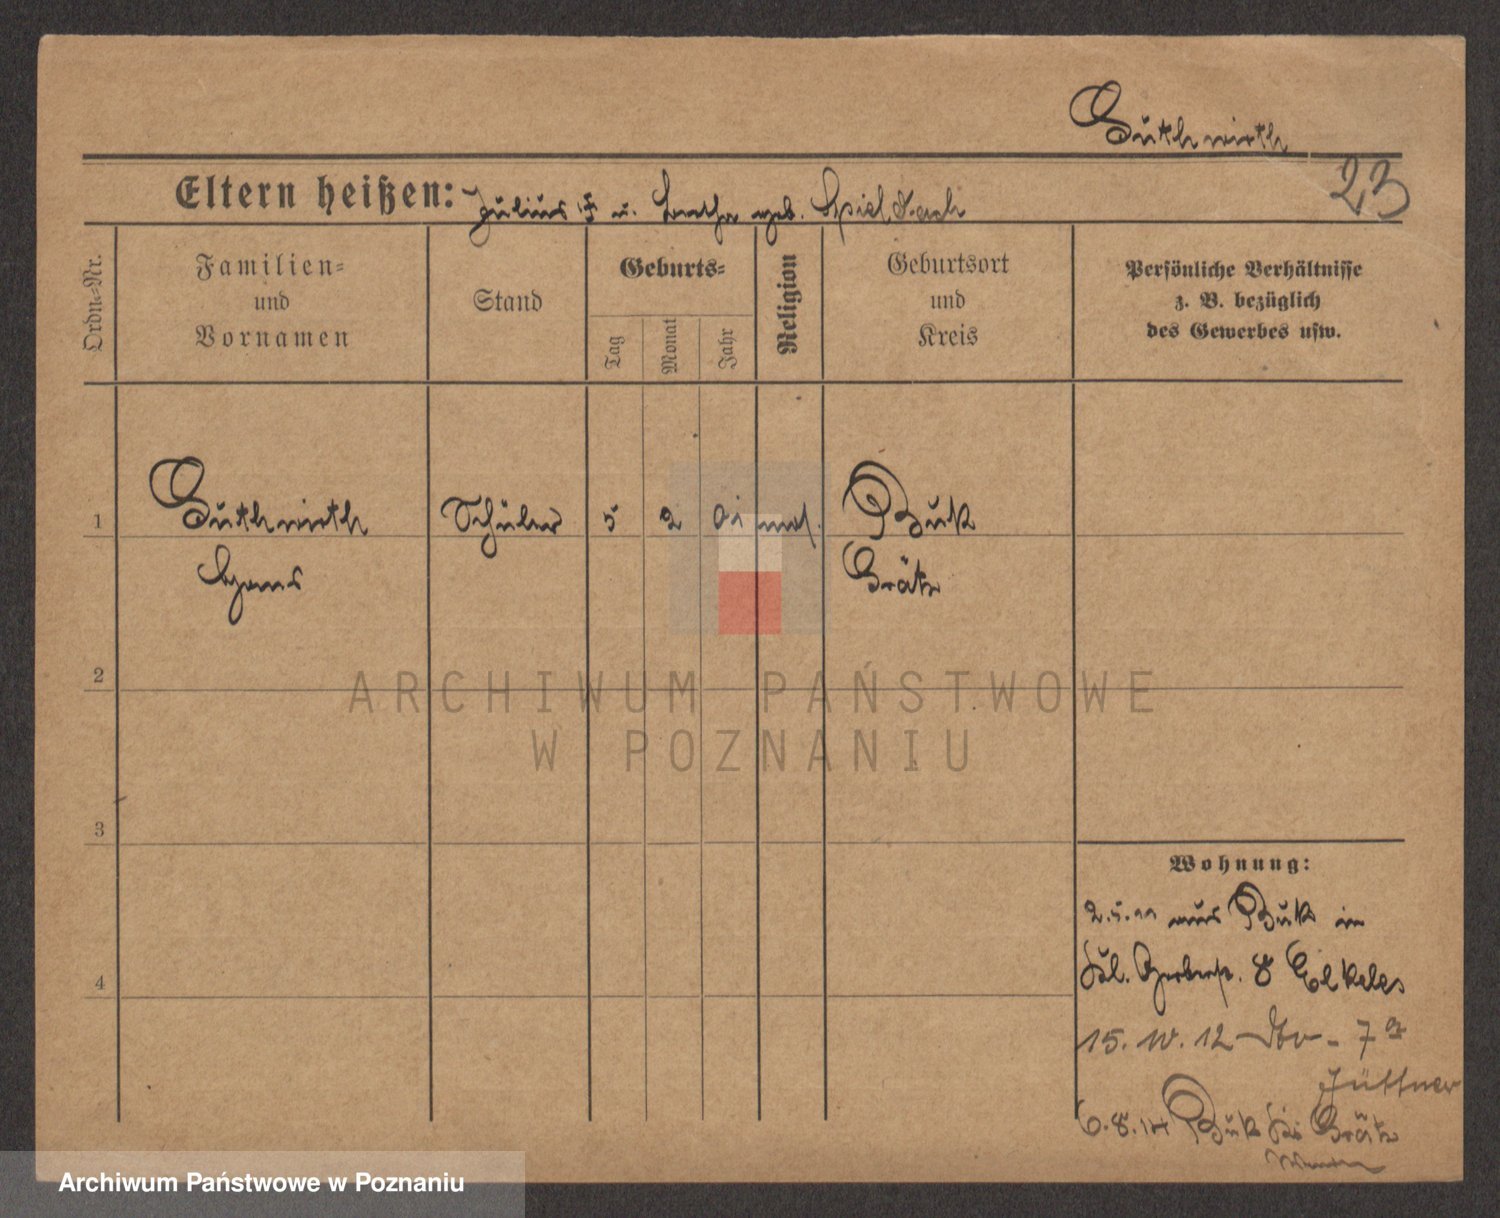 Guthwirth
23
Eltern heißen: Julius u. geb.
Ordn.-Nr.
Familien-
und
Vornamen
Stand
Geburts-
Tag
Monat
Jahr
Religion
Geburtsort
und
Kreis
Persönliche Verhältnisse
z. B. bezüglich
des Gewerbes usw.
1 Guthwirth Schüler 5 2 01 mos. Buk
Hans Grätz
2
3
4
Wohnung:
2.5.11 aus Buk in
Kl. Gerberstr. 8 Elkeles
15. 10. 12 7a
Jüttner
6.8.14 Buk Grätz
ARCHIWUM PAŃSTWOWE
W POZNANIU
Archiwum Państwowe w Poznaniu